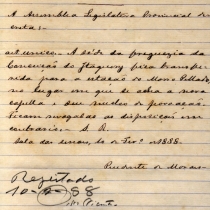 A Assembléa Legislativa Provincial de
creta:
art. unico. A séde da freguezia da
Conceição do Itaquery fica transfe-
rida para a estação do Morro Pellado,
no lugar em que se acha a nova
capella e seu nucleo de povoação.
Ficam revogadas as disposições em
contrario. S. R.
Sala das sessões, 10 de Fevro de 1888.
Prudente de Moraes
Regeitado
10 88